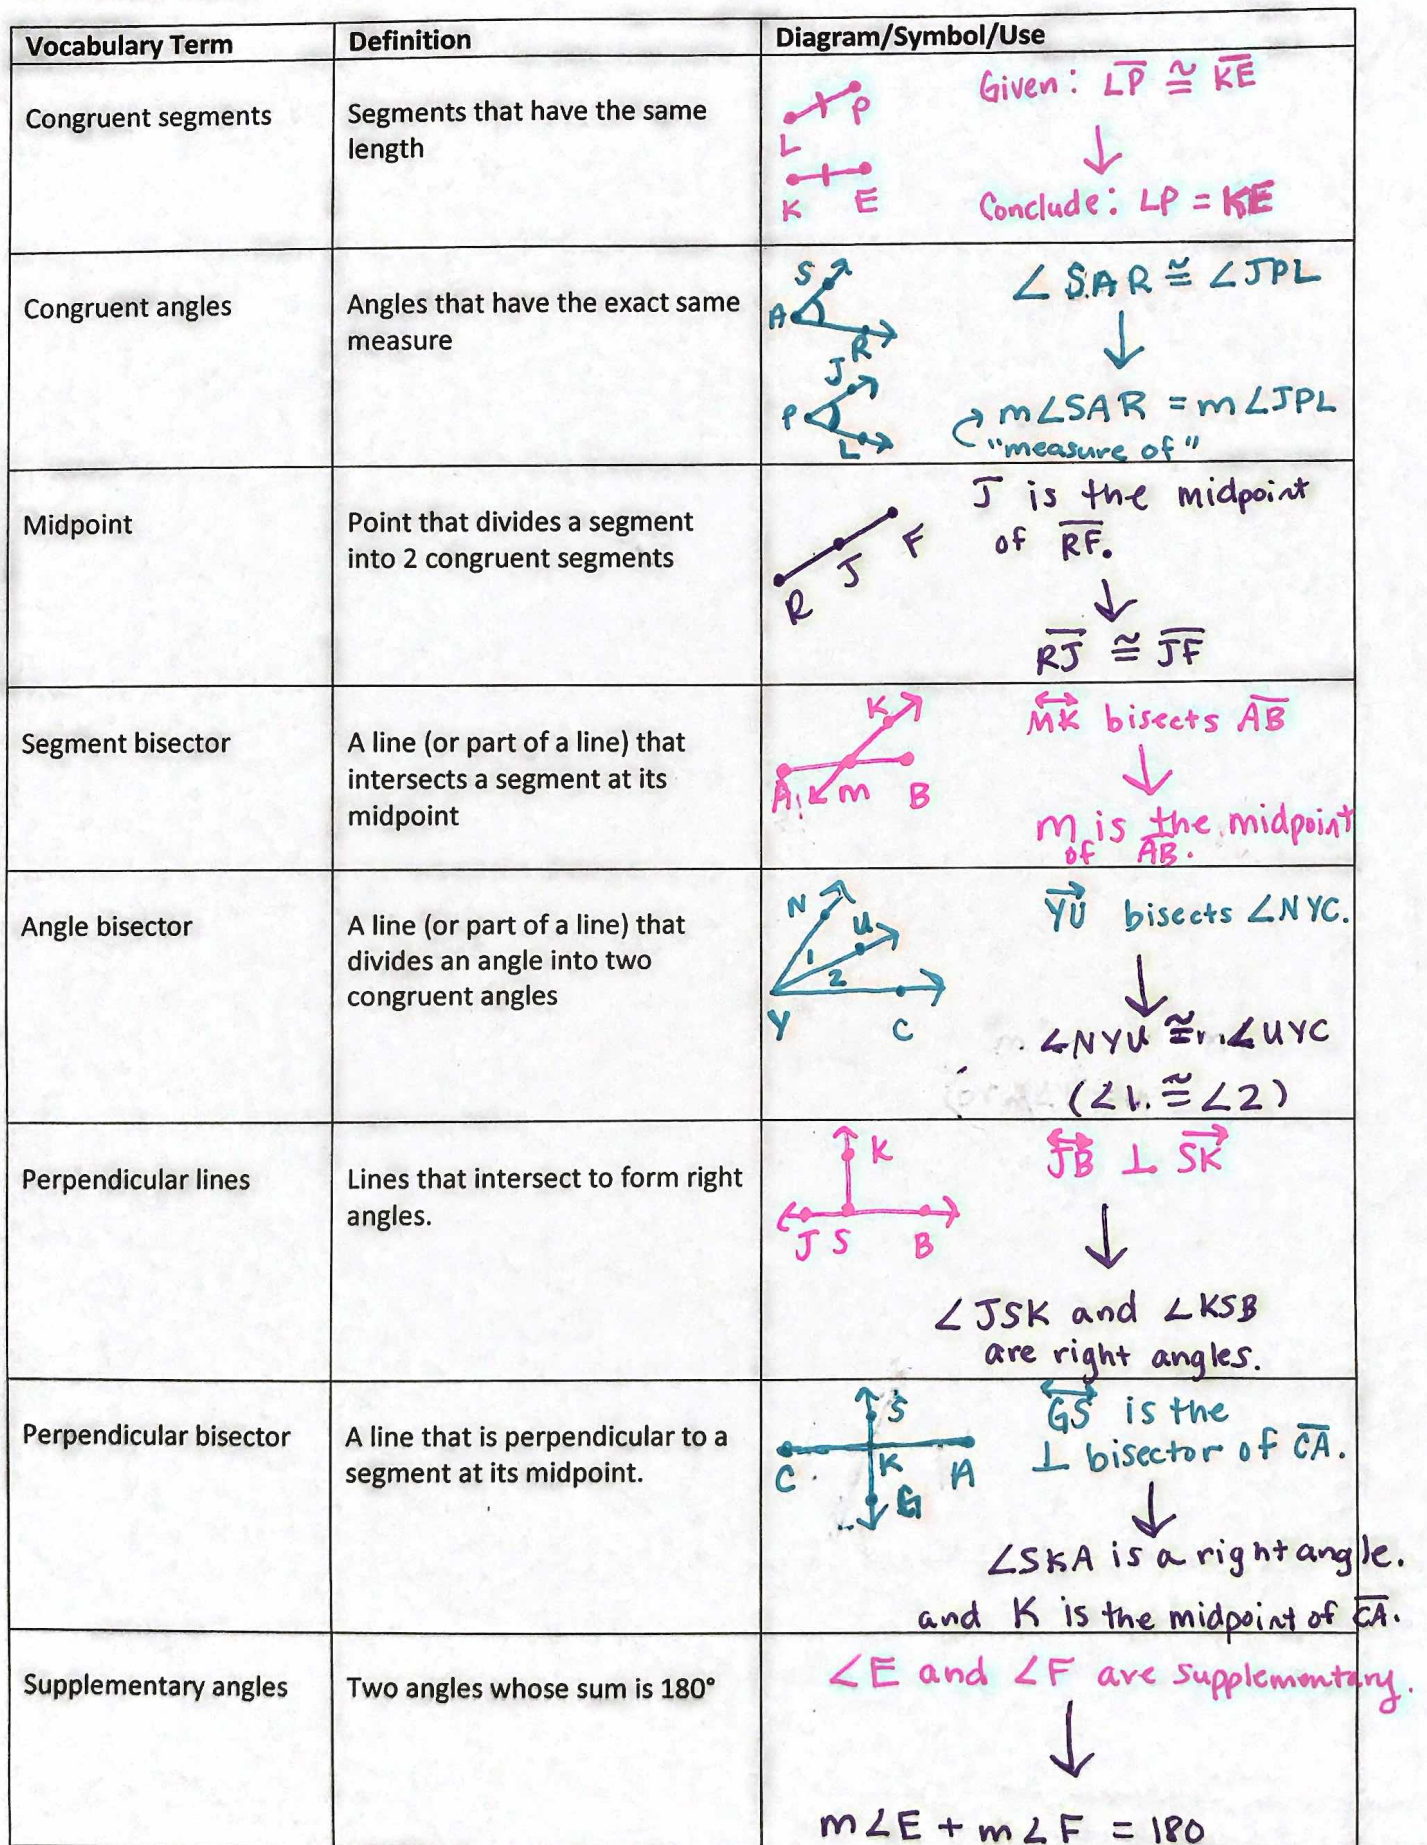 Vocabulary Term Definition Diagram/Symbol/Use
Congruent segments
Segments that have the same
length
P
L
K E
Given: L̅P̅ ≅ K̅E̅
↓
Conclude: LP = KE
Congruent angles
Angles that have the exact same
measure
S
A
R
J
P
L
∠SAR ≅ ∠JPL
↓
m∠SAR = m∠JPL
"measure of"
Midpoint
Point that divides a segment
into 2 congruent segments
F
J
R
J is the midpoint
of R̅F̅.
↓
R̅J̅ ≅ J̅F̅
Segment bisector
A line (or part of a line) that
intersects a segment at its
midpoint
K
A M B
MK bisects A̅B̅
↓
M is the midpoint
of A̅B̅.
Angle bisector
A line (or part of a line) that
divides an angle into two
congruent angles
N
U
1
2
Y C
YU bisects ∠NYC.
↓
∠NYU ≅ ∠UYC
(∠1 ≅ ∠2)
Perpendicular lines
Lines that intersect to form right
angles.
K
J S B
JB ⊥ SK
↓
∠JSK and ∠KSB
are right angles.
Perpendicular bisector
A line that is perpendicular to a
segment at its midpoint.
S
C K A
G
GS is the
⊥ bisector of C̅A̅.
↓
∠SKA is a right angle.
and K is the midpoint of C̅A̅.
Supplementary angles
Two angles whose sum is 180°
∠E and ∠F are supplementary.
↓
m∠E + m∠F = 180